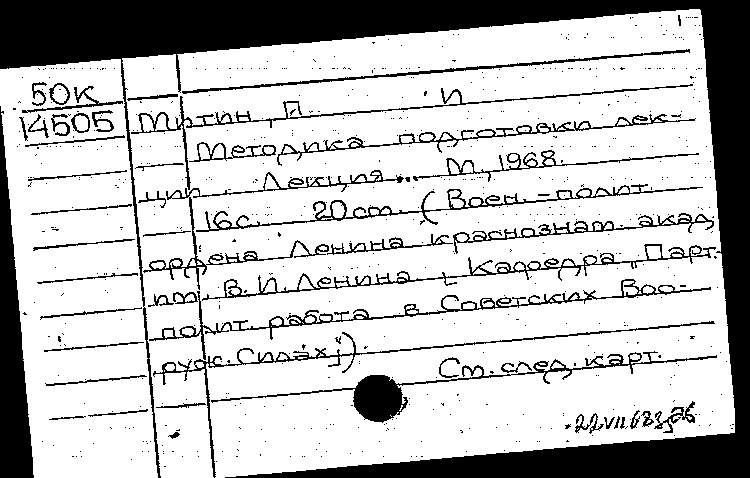 50К
14505 Митин, П И
Методика подготовки лек-
ции. Лекция... М., 1968.
16с. 20см. (Воен.-полит.
ордена Ленина краснознам. акад.
им. В.И.Ленина. Кафедра "Парт.-
полит. работа в Советских Воо-
руж. Силах").
См. след. карт.
22.VII.68